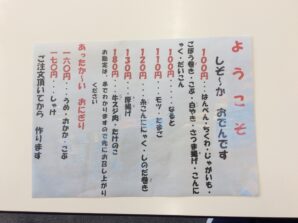 ようこそ
しぞ〜か おでんです
100円・・・はんぺん・ちくわ・じゃがいも・
ごぼう巻き・こぶ・白やき・さつま揚げ・こんに
ゃく・だいこん
100円・・・なると
110円・・・モツ・たまご
120円・・・糸こんにゃく・しのだ巻き
130円・・・厚揚げ
180円・・・牛スジ肉・たけのこ
お勘定は、串でわかりますので先にお召し上がり
ください
あったか〜い おにぎり
一六〇円・・・うめ・おかか・こぶ
一七〇円・・・しゃけ
ご注文頂いてから 作ります